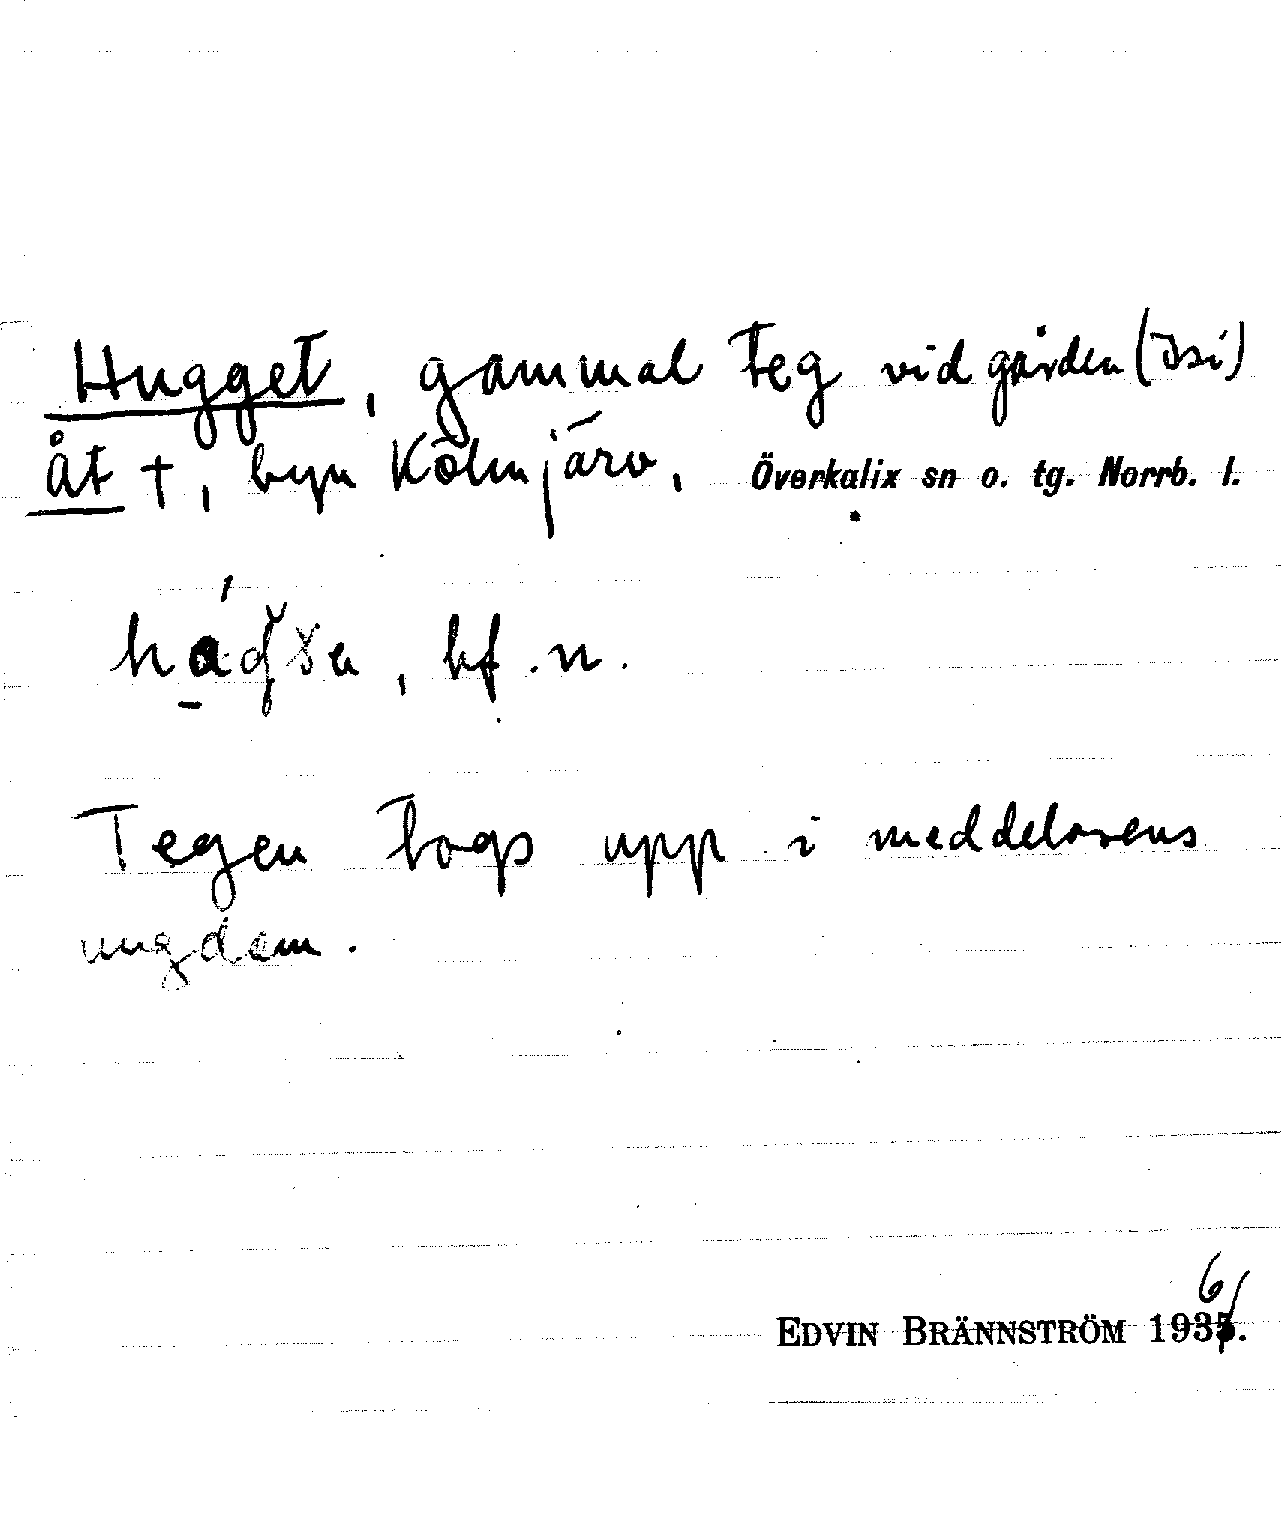 Hugget, gammal teg vid gården (Isi)
åt †, byn Kölmjärv, Överkalix sn o. tg. Norrb. l.
, bf. n.
Tegen togs upp i meddelarens
ungdom.
6
EDVIN BRÄNNSTRÖM 1935.